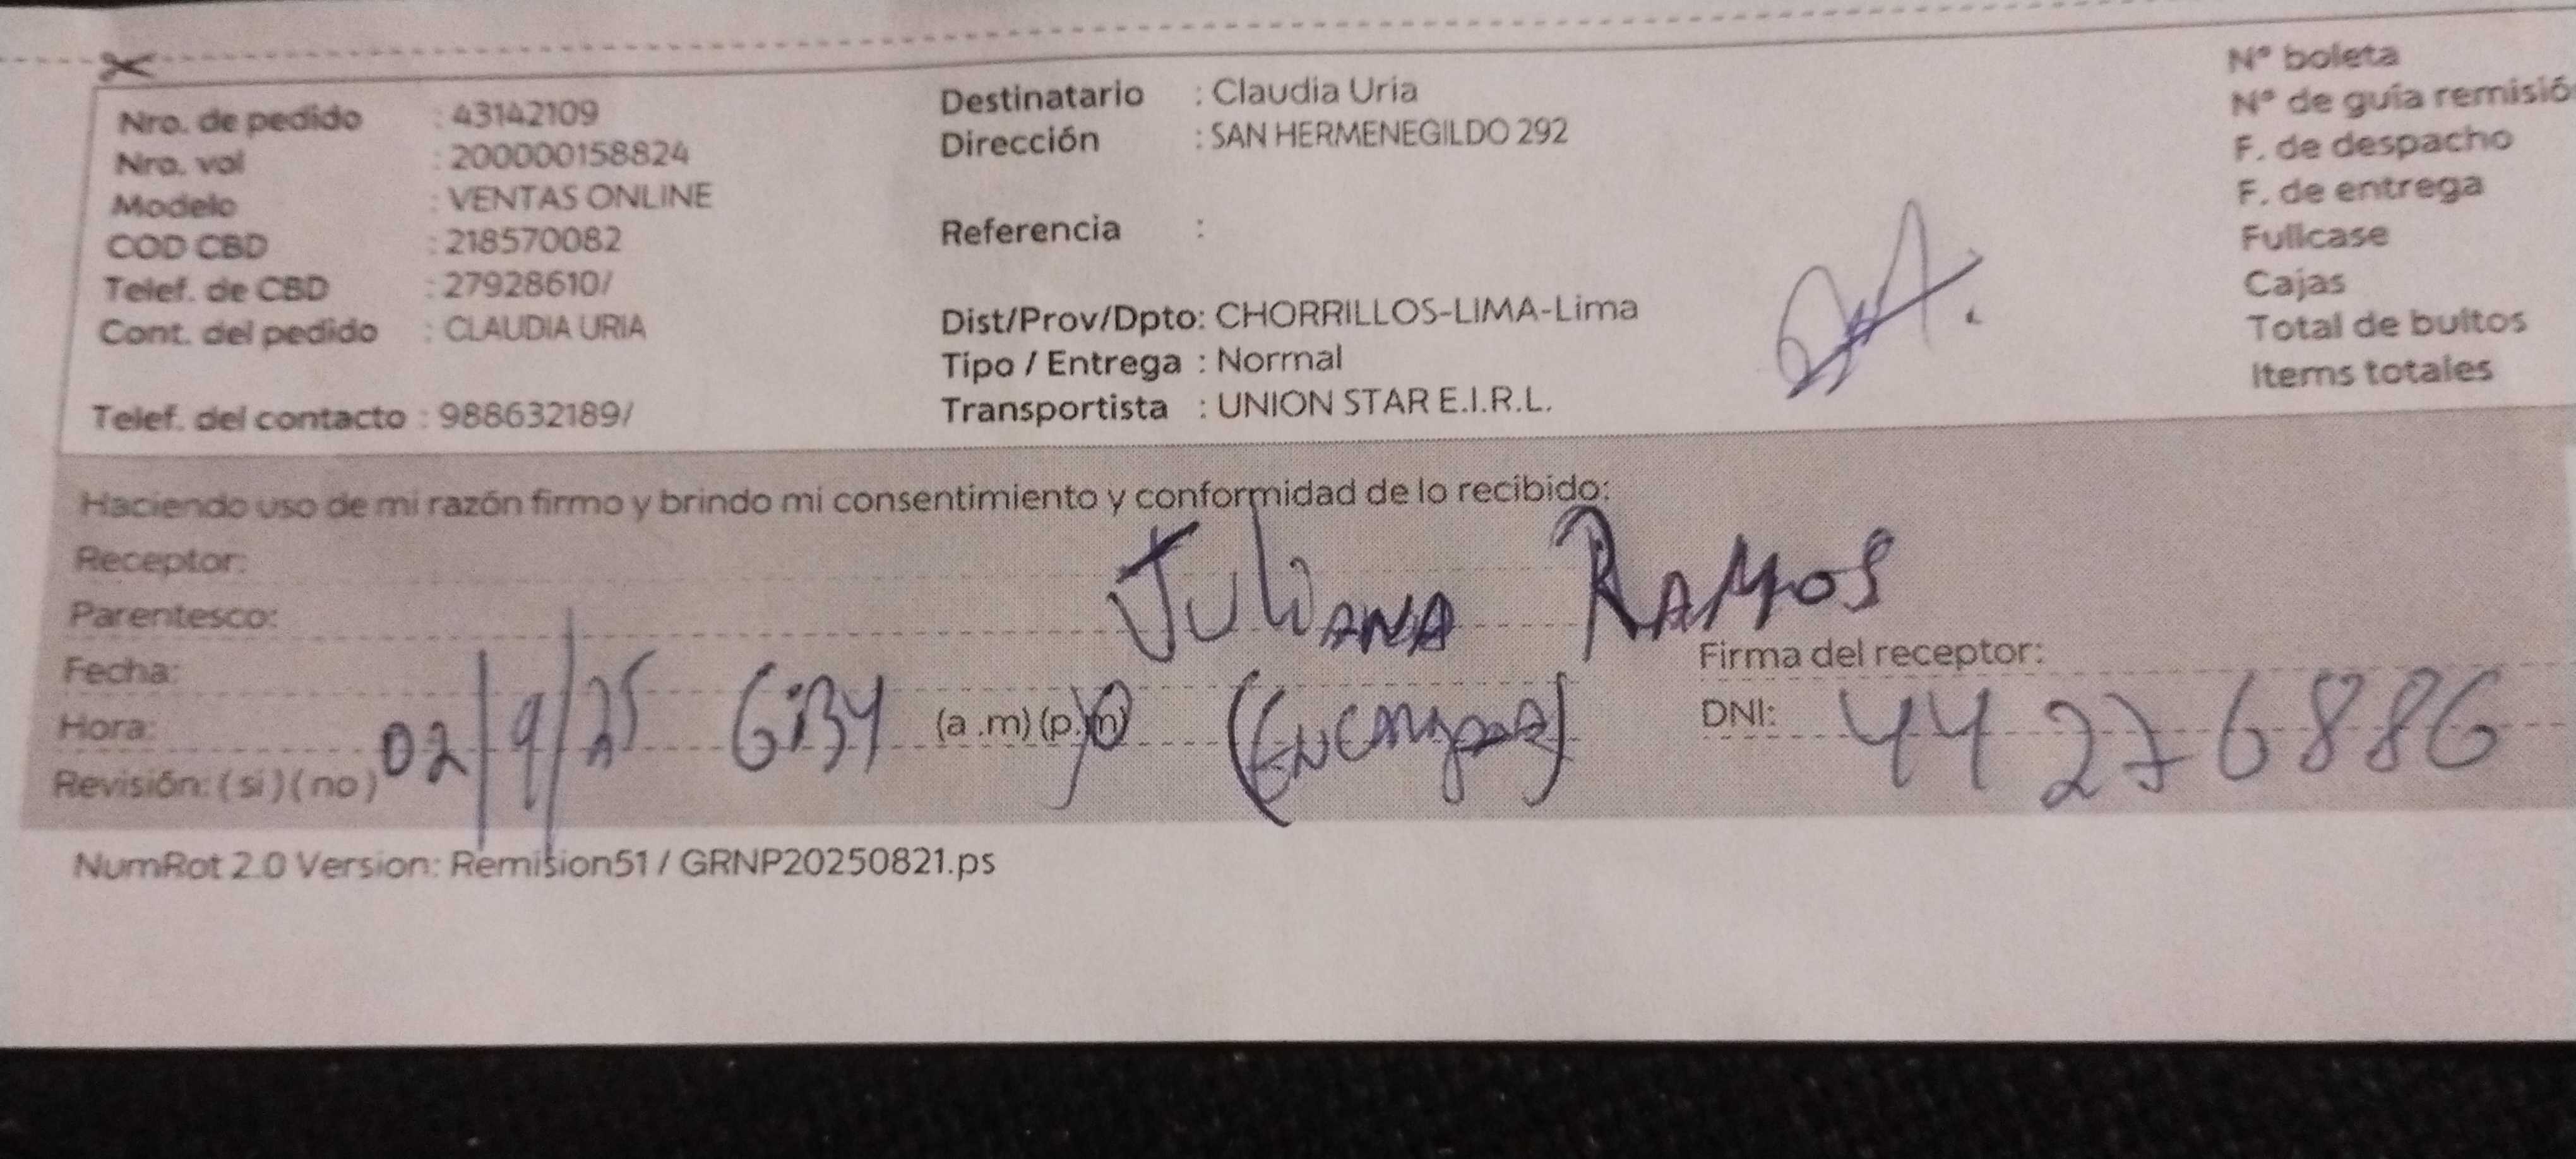 Nro. de pedido : 43142109
Nro. vol : 200000158824
Modelo : VENTAS ONLINE
COD CBD : 218570082
Telef. de CBD : 27928610/
Cont. del pedido : CLAUDIA URIA
Telef. del contacto : 988632189/
Destinatario : Claudia Uria
Dirección : SAN HERMENEGILDO 292
Referencia :
Dist/Prov/Dpto: CHORRILLOS-LIMA-Lima
Tipo / Entrega : Normal
Transportista : UNION STAR E.I.R.L.
N° boleta
N° de guía remisió
F. de despacho
F. de entrega
Fullcase
Cajas
Total de bultos
Items totales
Haciendo uso de mi razón firmo y brindo mi consentimiento y conformidad de lo recibido:
Receptor:
Juliana Ramos
Parentesco:
Firma del receptor:
Fecha:
02/9/25 6:34 (a .m) (p.m)
Hora:
DNI: 44276886
Revisión: ( si ) ( no )
NumRot 2.0 Version: Remision51 / GRNP20250821.ps